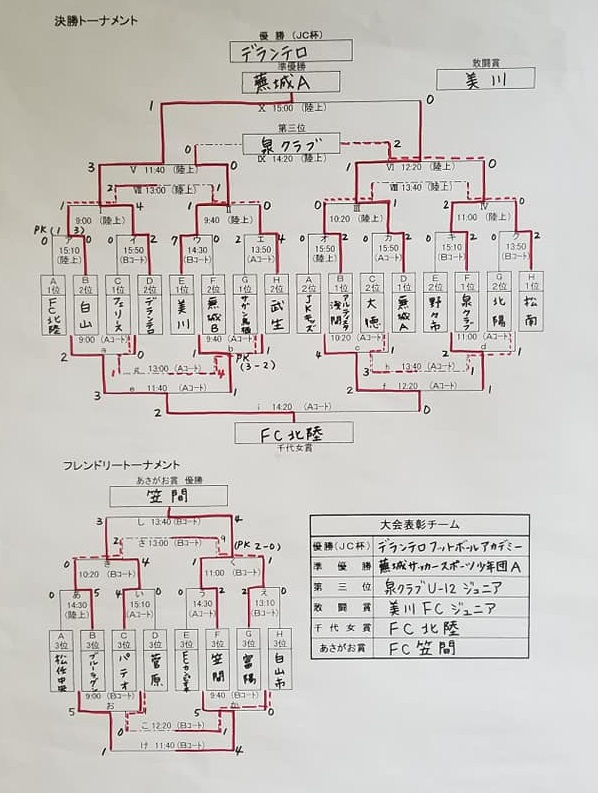 決勝トーナメント
優勝（JC杯）
デランテロ
準優勝
蕪城A
敢闘賞
美川
1 0
X 15:00 (陸上)
第三位
0 泉クラブ 2
IX 14:20 (陸上)
3 0 1 0
V 11:40 (陸上) VI 12:20 (陸上)
2 VIII 13:00 (陸上) 1 0 VIII 13:40 (陸上) 2
1 I 4 1 II 0 1 III 0 1 IV 0
9:00 (陸上) 9:40 (陸上) 10:20 (陸上) 11:00 (陸上)
PK(1 3)
0 ア 0 0 イ 2 7 ウ 0 2 エ 4 2 オ 0 0 カ 2 0 キ 2 0 ク 2
15:10 (陸上) 15:50 (Bコート) 14:30 (Bコート) 13:50 (陸上) 15:50 (Bコート) 15:50 (陸上) 15:10 (Bコート) 13:50 (Bコート)
A B C D E F G H A B C D E F G H
1位 2位 1位 2位 1位 2位 2位 1位 2位 1位 2位 1位 2位 1位 2位 1位
FC北陸 白山 フェリース デランテロ 美川 蕪城B サガン鳥栖 武生 JKキッズ 大徳 蕪城A 野々市 泉クラブ 北陽 松南
9:00 (Aコート) 9:40 (Aコート) 10:20 (Aコート) 11:00 (Aコート)
2 a 0 1 b 1 4 c 1 2 d 1
PK (3-2)
1 g 13:00 (Aコート) 4 3 h 13:40 (Aコート) 1
3 e 11:40 (Aコート) 1 2 f 12:20 (Aコート) 1
2 i 14:20 (Aコート) 0
FC北陸
千代女賞
フレンドリートーナメント
あさがお賞 優勝
笠間
3 し 13:40 (Bコート) 4
2 さ 13:00 (Bコート) 9
(PK 2-0)
0 き 4 1 く 1
10:20 (Bコート) 11:00 (Bコート)
0 あ 4 0 い 2 0 う 2 2 え 0
14:30 (陸上) 15:10 (Aコート) 14:30 (Aコート) 13:10 (Bコート)
A B C D E F G H
3位 3位 3位 3位 3位 3位 3位 3位
松任中央 ブルーラグーン パテオ 菅原 笠間 富陽 白山市
9:00 (Bコート) 9:40 (Bコート)
5 お 1 5 か 0
0 こ 12:20 (Bコート) 1
1 け 11:40 (Bコート) 4
大会表彰チーム
優勝(JC杯) デランテロフットボールアカデミー
準優勝 蕪城サッカースポーツ少年団A
第三位 泉クラブU-12ジュニア
敢闘賞 美川FCジュニア
千代女賞 FC北陸
あさがお賞 FC笠間